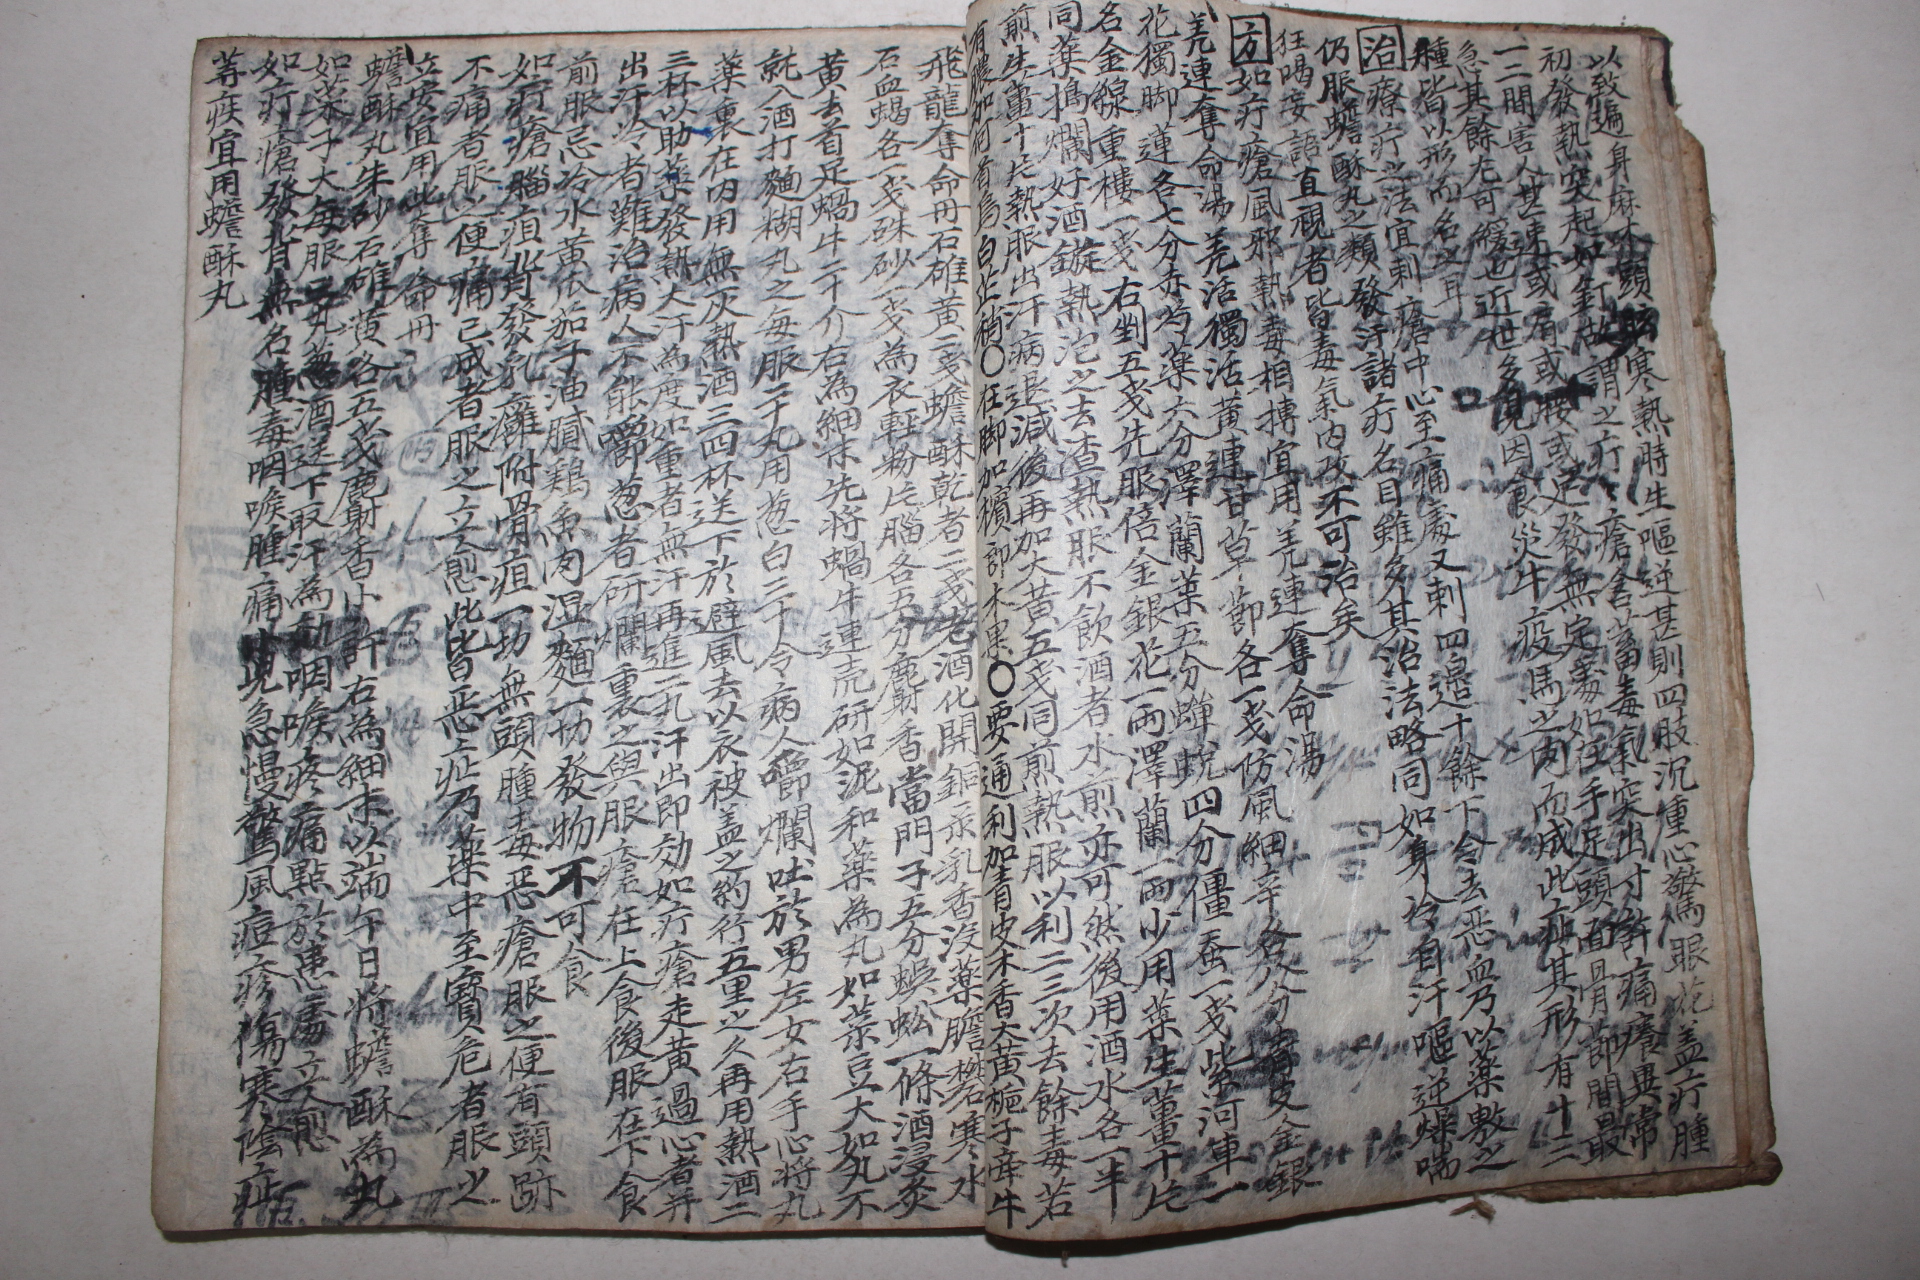 以致遍身麻木頭眩寒熱時生嘔逆甚則四肢沉重心驚眼花盖疔腫
初發執突起如釘故謂之疔疔瘡含蓄毒氣突出寸許痛癢異常
一二間害人甚速或肩或腰或足發無定處如在手足頭面骨節間最
急其餘尤可緩也近世多見因食災牛疫馬之肉而成此症其形有十三
種皆以形而名之耳
治療疔之法宜刺瘡中心至痛處又刺四邉十餘下令去惡血乃以藥敷之
仍服蟾酥丸之類發汗諸疔名目雖多其治法略同如身冷自汗嘔逆燥喘
狂喝妄語直視者皆毒氣内攻不可治矣
方如疔瘡風邪熱毒相搏宜用羌連奪命湯
羌連奪命湯羌活獨活黄連甘草節各一戔防風細辛各八分青皮金銀
花獨脚蓮各七分赤芍藥六分澤蘭葉五分蟬蛻四分僵蚕一戔紫河車一
名金線重樓一戔右剉五戔先服倍金銀花一兩澤蘭一兩少用葉生薑十片
同藥搗爛好酒鏇熱沱之去渣熱服不飲酒者水煎亦可然後用酒水各一半
煎生薑十片熱服出汗病退減後再加大黄五戔同煎熱服以利二三次去餘毒若
有膿加何首烏白芷稍〇在脚加檳郎木果〇要通利加青皮木香大黄梔子牽牛
飛龍奪命丹石雄黄二戔蟾酥乾者二戔老酒化開銅录乳香没藥膽礬寒水
石血蝎各一戔硃砂一戔為衣輕粉片腦各五分麝香當門子五分蜈蚣一條酒浸炙
黄去首足蝸牛二十介右為細末先將蝸牛連売研如泥和藥為丸如菉豆大如丸不
就入酒打麵糊丸之每服二丸用葱白二寸令病人嚼爛吐於男左女右手心將丸
藥裏在内用無灰熱酒三四杯送下於避風去以衣被盖之約行五里之久再用熱酒二
三杯以助藥發熱大汗為度如重者無汗再進二丸汗出即効如疔瘡走黄過心者并
出汗以冷者難治病人不能嚼葱者研爛裏之與服瘡在上食後服在下食
前服忌冷水黄依茄子油膩鶏魚肉湿麵一切發物不可食
如疔瘡腦疽背發乳癰附骨疽一切無頭腫毒惡瘡服之便有頭跡
不痛者服之便痛已成者服之立愈此皆惡症乃藥中至寶危者服之
立安宜用此奪命丹
蟾酥丸朱砂石雄黄各五戔麝香少許右為細末以端午日將蟾酥為丸
如菉子大每服三丸葱酒送下取汗為効咽喉疼痛點於患處立愈
如疔瘡發背無名腫毒咽喉腫痛小児急慢驚風痘疹傷寒陰症
等疾宜用蟾酥丸